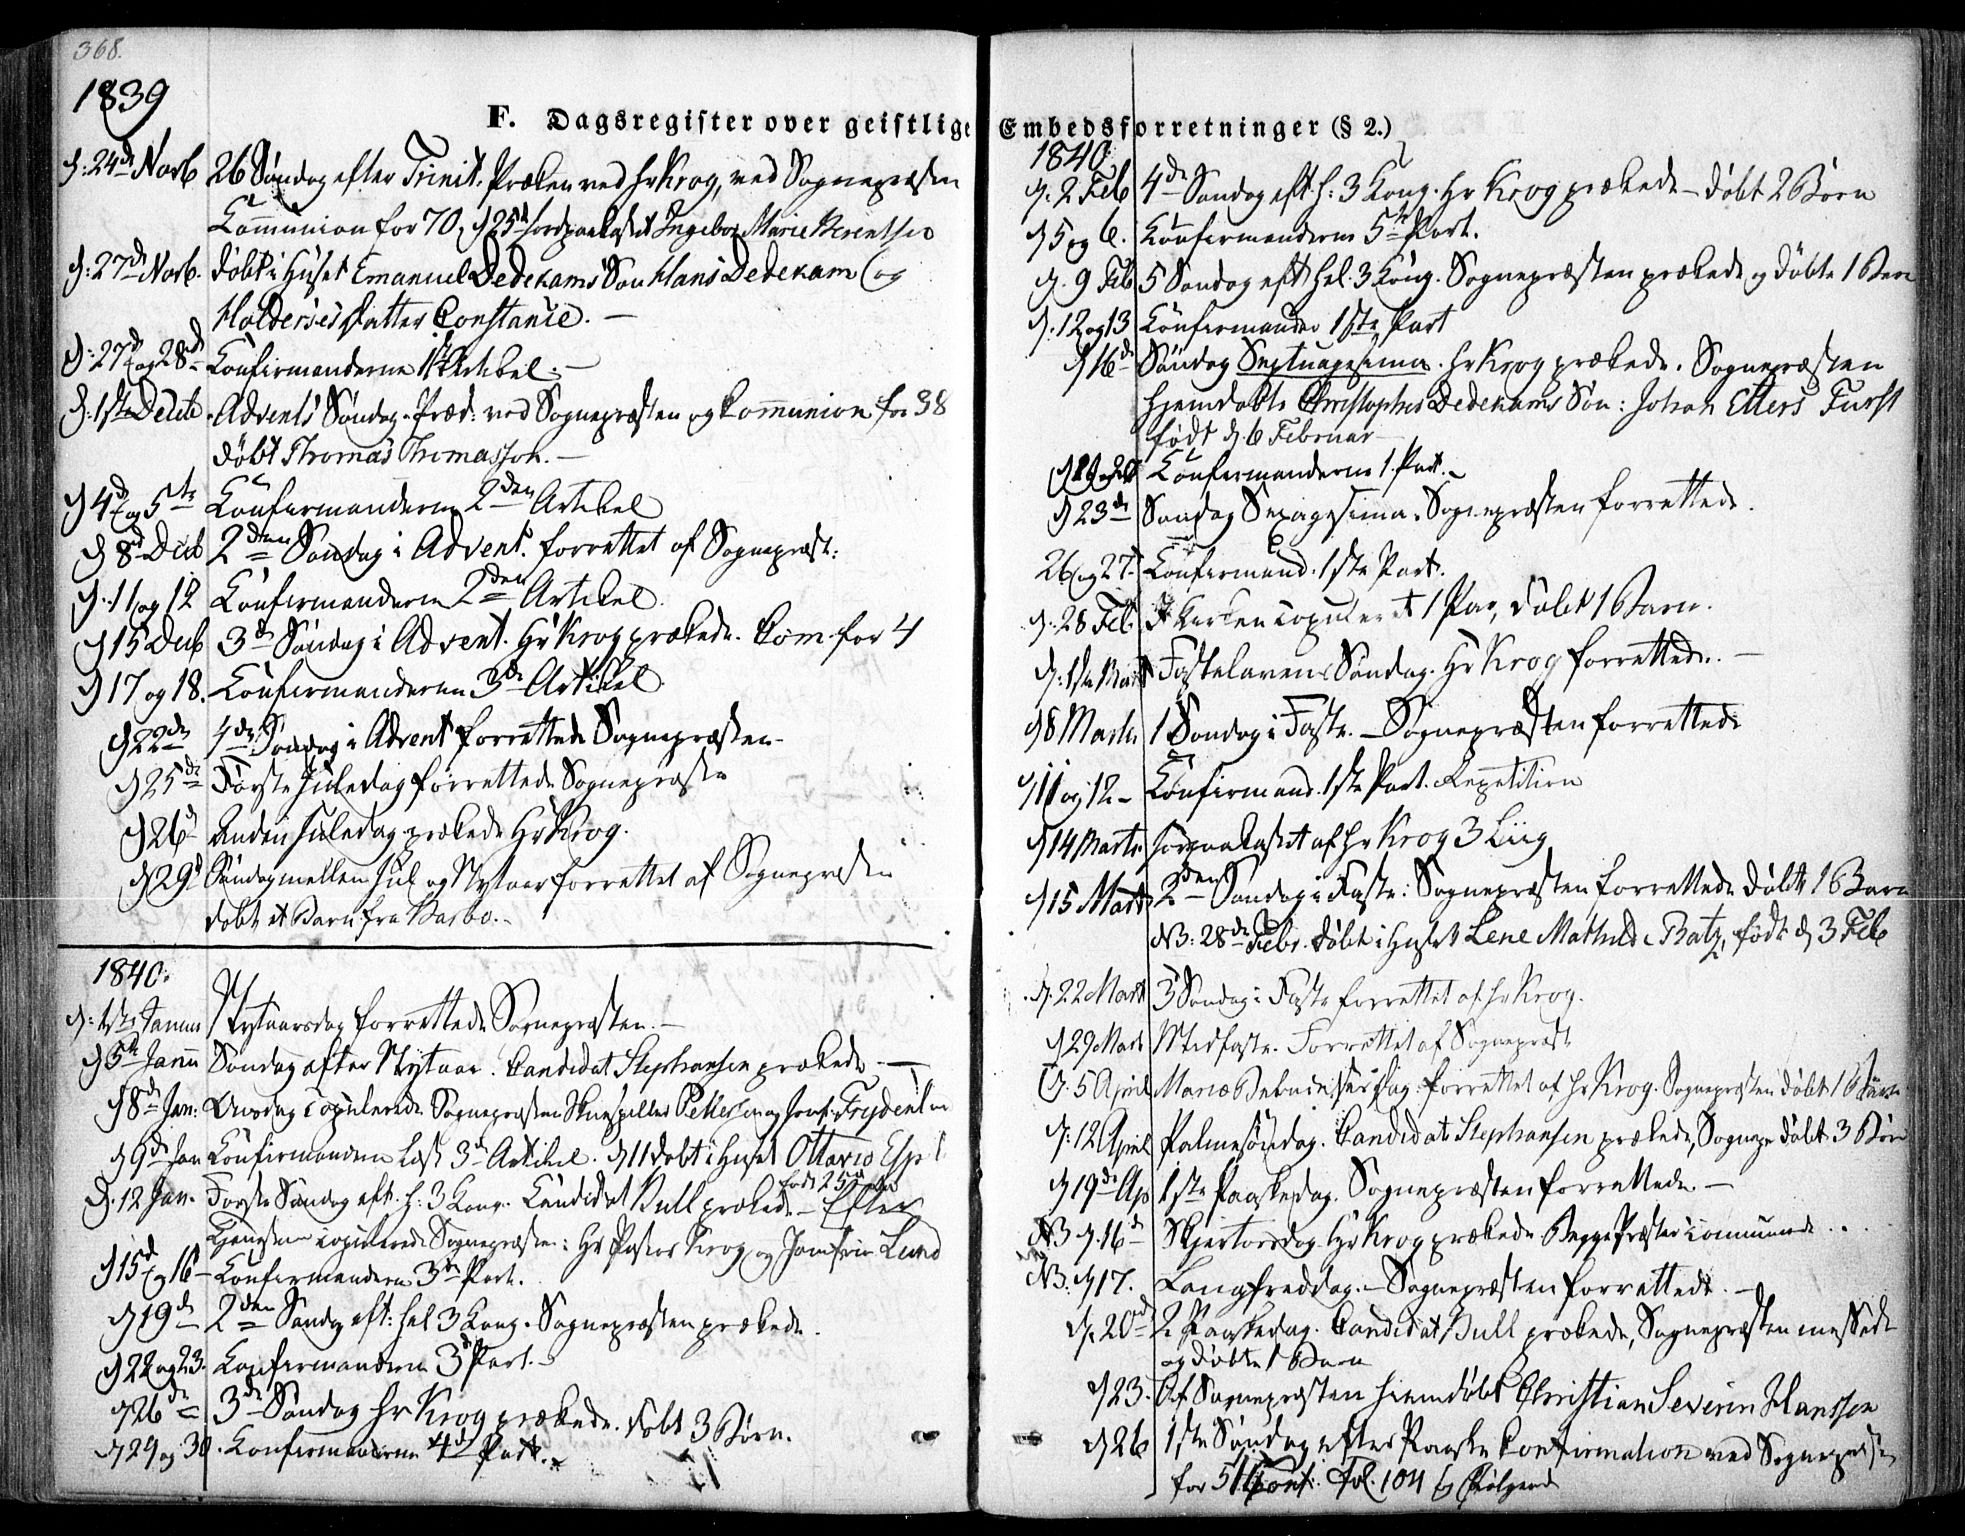 368.
1839
F. Dagsregister over geistlige Embedsforretninger (§ 2.)
d: 24de Novb 26 Søndag efter Trinit. Præken ved Hr Krog, ved Sognepræsten
Communion for 70, d 25de Jordpaakastet Ingebor Marie Berentsen
d: 27de Novb. døbt i Huset Emanuel Dedekams Søn Hans Dedekam (og
Datter Constance. —
d: 27de og 28de Confirmanderne 1ste Artikel. —
d: 1ste Decbr Advents Søndag. Præd: ved Sognepræsten og Communion for 38
døbt Thomas Thomassøn. —
d 4de og 5te Confirmanderne 2den Artikel
d 8de Decb 2den Søndag i Advent. forrettet af Sognepræst:
d. 11 og 12 Confirmanderne 2den Artikel.
d 15 Decb 3de Søndag i Advent. Hr Krog prækede. Com. for 4
d 17 og 18. Confirmanderne 3de Artikel
d 22de 4de Søndag i Advent forrettede Sognepræsten
d 25de Første Juledag forrettede Sognepræsten
d 26d Anden Juledag prækede Hr Krog.
d 29d Søndag mellem Jul og Nytaar forrettet af Sognepræsten
døbt et Barn fra Barbo. —
1840.
d: 1ste Januar Nytaarsdag forrettede Sognepræsten. —
d 5te Janu Søndag efter Nytaar. Candidat Stephansen prækede —
d 8de Jan: Onsdag copulerede Sognepræsten Skuespiller Pettersen og Jomf: Frydenl
d 9de Jan Confirmanderne Læst 3de Artikel. d 11 døbt i Huset Ottavio Esp
født 25
d. 12 Jan. Første Søndag eft. H. 3 Kong. Candidat Bull prækede — Efter
Tjenesten copulerede Sognepræsten: Hr Pastor Krog og Jomfru Lund
d 15d og 16 Confirmanderne 3de Part.
d 19de 2den Søndag eft: hel 3 Kong. Sognepræsten prækede.
d 22 og 23. Confirmanderne 3d Part. —
d 26de 3de Søndag Hr Krog prækede. døbt 3 Børn.
d 29 og 30. Confirmanderne 4d Part.
1840
d. 2 Feb 4de Søndag eft. H: 3 Kong. Hr Krog prækede — døbt 2 Børn
d 5 og 6. Confirmanderne 5te Part.
d. 9 Feb 5 Søndag eft Hel. 3 Kong. Sognepræsten prækede og døbte 1 Barn
d. 12 og 13 Confirmander 1ste Part
d 16de Søndag Septuagesima. Hr Krog prækede. Sognepræsten
hjemdøbte Christopher Dedekams Søn: Johan Ellers Furst
født d. 6 Februar —
Confirmanderne 1. Part.
d 23de Søndag Sexagesima. Sognepræsten forrettede.
26 og 27. Confirmand. 1ste Part.
d. 28 Feb. I Kirken copuleret 1 Par, døbt 1 Barn.
d. 1ste Mart Fastelavens Søndag. Hr Krog forrettede. —
d 8 Marts 1 Søndag i Faste. — Sognepræsten forrettede
d 11 og 12 — Confirmand. 1ste Part. Repetition
d 14 Marts Jordpaakastet af Hr Krog 3 Liig
d 15 Mart 2den Søndag i Faste: Sognepræsten forrettede døbte 1 Barn
NB: 28de Febr. døbt i Huset Lene Mathilde Batz, født d 3 Feb
d. 22 Mart 3 Søndag i Faste forrettet af Hr Krog.
d 29 Mart Midfaste. Forrettet af Sognepræst
d. 5 April Mariæ Bebudelses Dag. forrettet af Hr Krog. Sognepræsten døbt 1 Barn
d: 12 April Palmesøndag. Candidat Stephansen prækede, Sognepr døbt 3 Børn
d 19de Ap 1ste Paaskedag. Sognepræsten forrettede. —
NB d. 16de Skjertorsdag Hr Krog prækede Begge Præster communi
NB. d 17. Langfredag. — Sognepræsten forrettede. —
d. 20de 2 Paaskedag. Candidat Bull prækede, Sognepræsten messede
og døbte 1 Barn
d 23. Af Sognepræsten hjemdøbt Christian Severin Hanssen
d 26 1ste Søndag efter Paaske Confirmation ved Sognepræsten
for 51 Conf: Fol. 104 og følgend